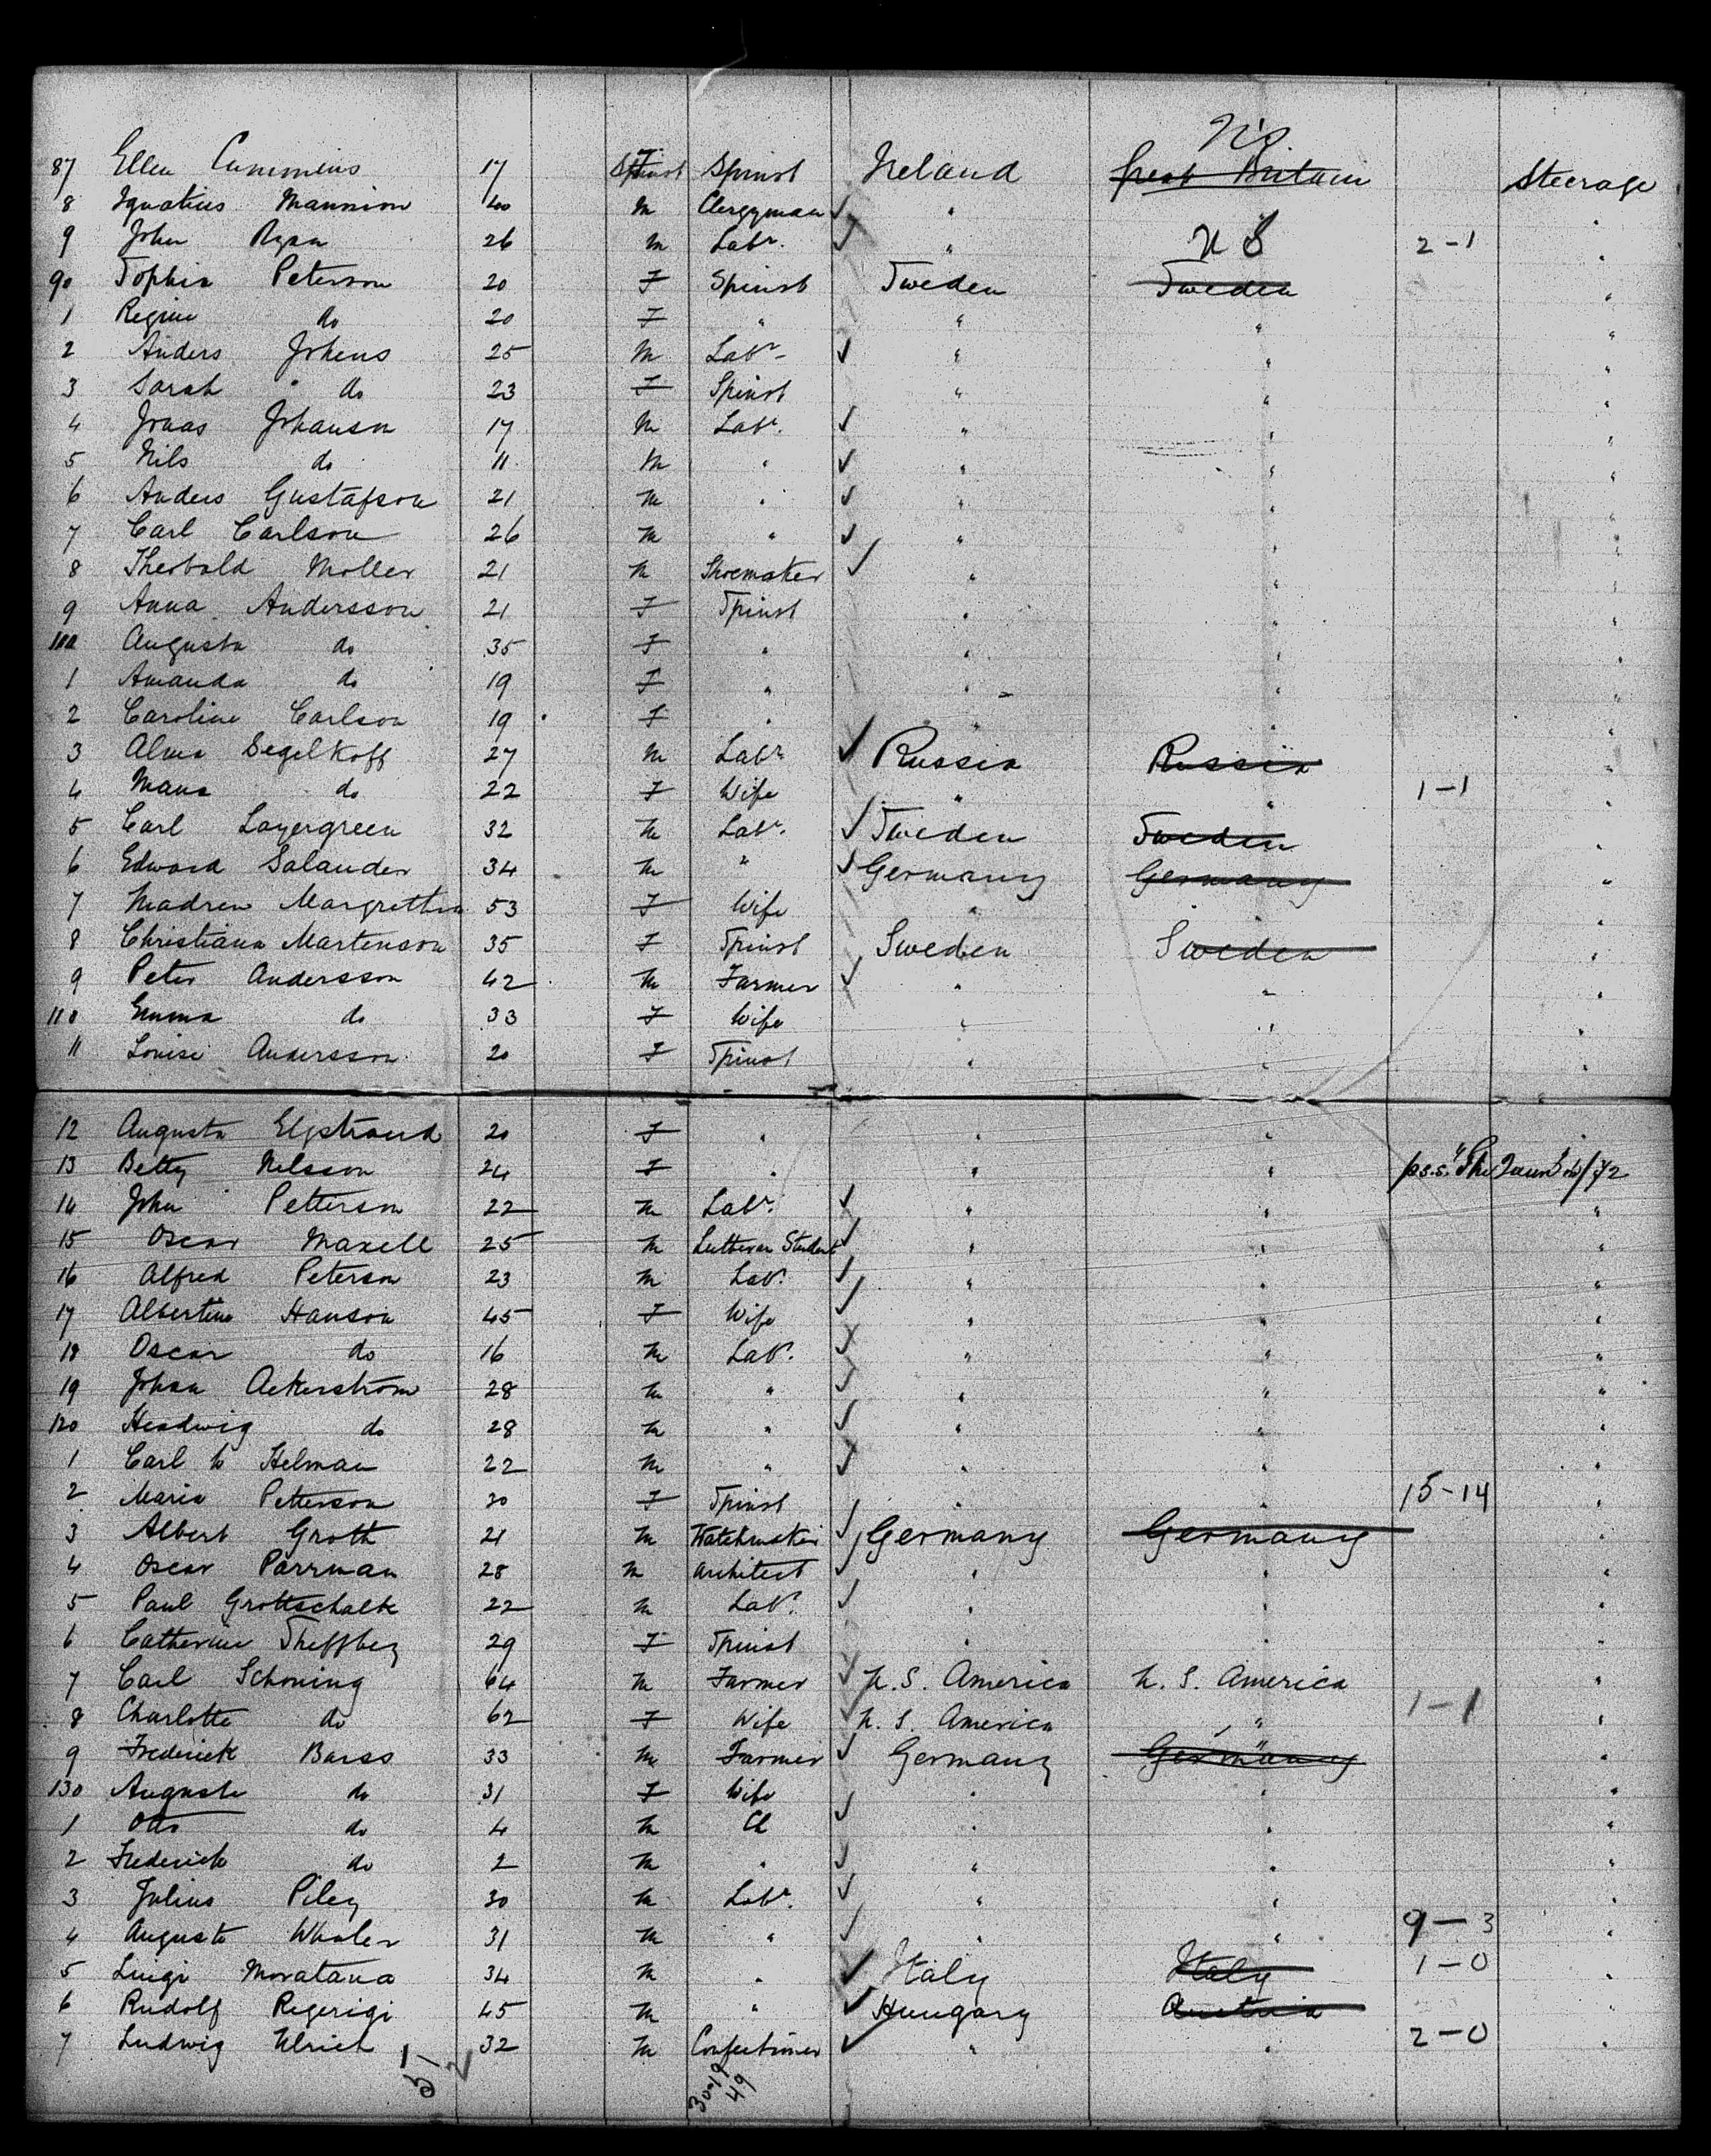 U S
87 Ellen Cummins 17 F Spinst Ireland Great Britain Steerage
8 Ignatius Mannion 40 M Clergyman ✓ " "
9 John Ryan 26 M Labr. ✓ " U S 2-1 "
90 Sophia Peterson 20 F Spinst Sweden Sweden "
1 Regine do 20 F " " " "
2 Anders Johens 25 M Labr ✓ " " "
3 Sarah do 23 F Spinst " " "
4 Jonas Johansn 17 M Labr. ✓ " " "
5 Nils do 11 M " ✓ " " "
6 Anders Gustafson 21 M " ✓ " " "
7 Carl Carlson 26 M " ✓ " " "
8 Theobald Moller 21 M Shoemaker ✓ " " "
9 Anna Andersson 21 F Spinst " " "
100 Augusta do 35 F " " " "
1 Amanda do 19 F " " " "
2 Caroline Carlson 19 F " " " "
3 Alma Segelkoff 27 M Labr ✓ Russia Russia "
4 Mana do 22 F Wife " " 1-1 "
5 Carl Layergreen 32 M Labr. ✓ Sweden Sweden "
6 Edward Salander 34 M " ✓ Germany Germany "
7 Madren Margretha 53 F Wife " " "
8 Christiana Martenson 35 F Spinst Sweden Sweden "
9 Peter Andersson 42 M Farmer ✓ " " "
110 Emma do 33 F Wife " " "
11 Louise Andersson 20 F Spinst " " "
12 Augusta 20 F " " " "
13 Betty Nelsson 24 F " " "
14 John Petterson 22 M Labr. ✓ " " "
15 Oscar Maxell 25 M Lutheran Student ✓ " " "
16 Alfred Peterson 23 M Labr. ✓ " " "
17 Albertina Hanson 45 F Wife ✓ " " "
18 Oscar do 16 M Labr. ✓ " " "
19 Johan Ackerström 28 M " ✓ " " "
120 Headwig do 28 M " ✓ " " "
1 Carl Helman 22 M " ✓ " " "
2 Maria Petterson 30 F Spinst " " 15-14 "
3 Albert Groth 21 M Watchmaker ✓ Germany Germany "
4 Oscar Parrman 28 M Architect ✓ " " "
5 Paul Grottschalk 22 M Labr. ✓ " " "
6 Catherine 29 F Spinst " " "
7 Carl Schoning 64 M Farmer ✓ U.S. America U.S. America "
8 Charlotte do 62 F Wife ✓ U.S. America " 1-1 "
9 Frederick Barss 33 M Farmer ✓ Germany Germany "
130 Auguste do 31 F Wife " " "
1 Otto do 4 M Ch ✓ " " "
2 Frederick do 2 M " ✓ " " "
3 Julius Piley 30 M Labr. ✓ " " "
4 Auguste Whaler 31 M " ✓ " " 9-3 "
5 Luigi Moratana 34 M " ✓ Italy Italy 1-0 "
6 Rudolf Regerigi 45 M " ✓ Hungary Austria "
7 Ludwig Ulrich 32 M Confectioner ✓ " " 2-0 "
51
2
30-19
49